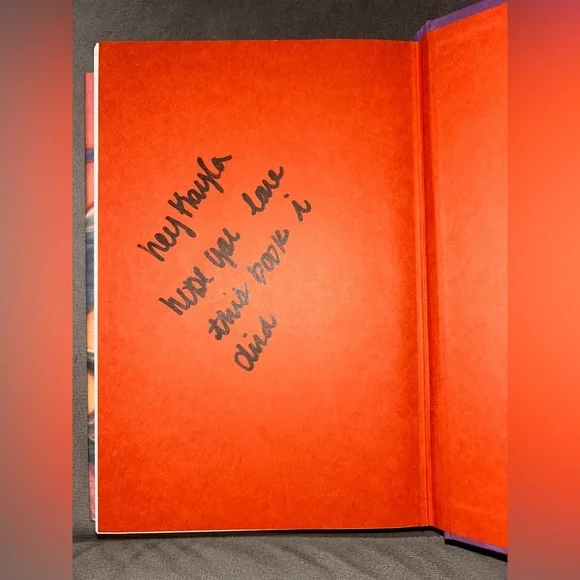 hey Kayla
hope you love
this book i
did